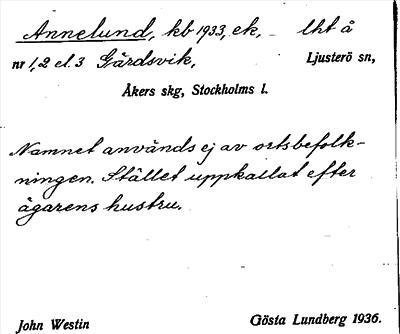 Annelund, kb 1933, ek, lht å
nr 1, 2 el. 3 Gärdsvik, Ljusterö sn,
Åkers skg, Stockholms l.
Namnet används ej av ortsbefolk-
ningen. Stället uppkallat efter
ägarens hustru.
John Westin Gösta Lundberg 1936.